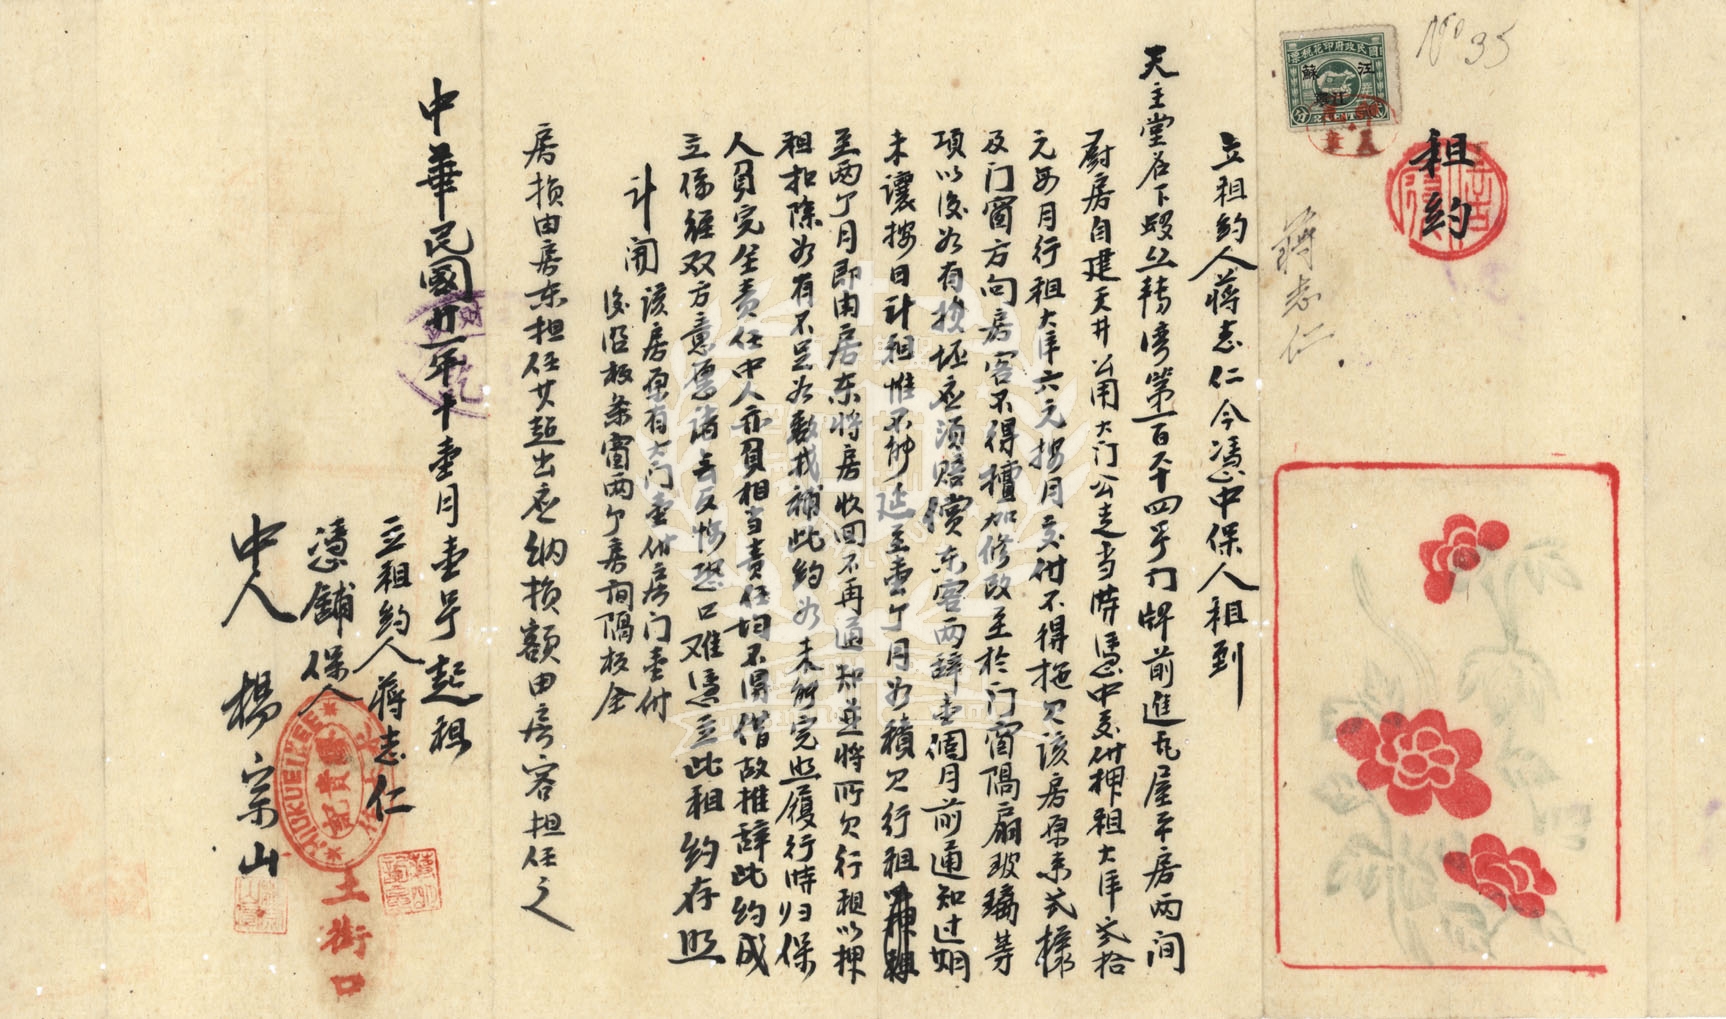 No 35
租約
蔣志仁
立租約人蔣志仁今憑中保人租到
天主堂名下蝦䗫轉灣第一百六十四号门牌前進瓦屋平房两间
廚房自建天井公用大门公走当時憑中交付押租大洋弍拾
元每月行租大洋六元按月交付不得拖欠该房原来式樣
及门窗方向房客不得擅加修改至於门窗隔扇玻璃等
項以後如有损坯应须賠償东客两辞壹個月前通知过期
未讓按日计租惟不能延至壹个月如積欠行租
至两个月即由房东將房收回不再通知並將所欠行租以押
租扣除如有不足如数找補此約如未能完照履行時归保
人負完全责任中人亦負相当责任均不得借故推辞此約成
立係經双方意愿诸無反悔恐口难憑立此租約存照
计開 该房原有大门壹付房门壹付
後沿板条窗两个房间隔板全
房损由房东担任廿超出应纳损额由房客担任之
中華民國廿一年十壹月壹号起租
立租約人蔣志仁
憑鋪保人
中人 楊宗山
HUKUEIKEE
貴記
土街口
國民政府印花稅票
江蘇